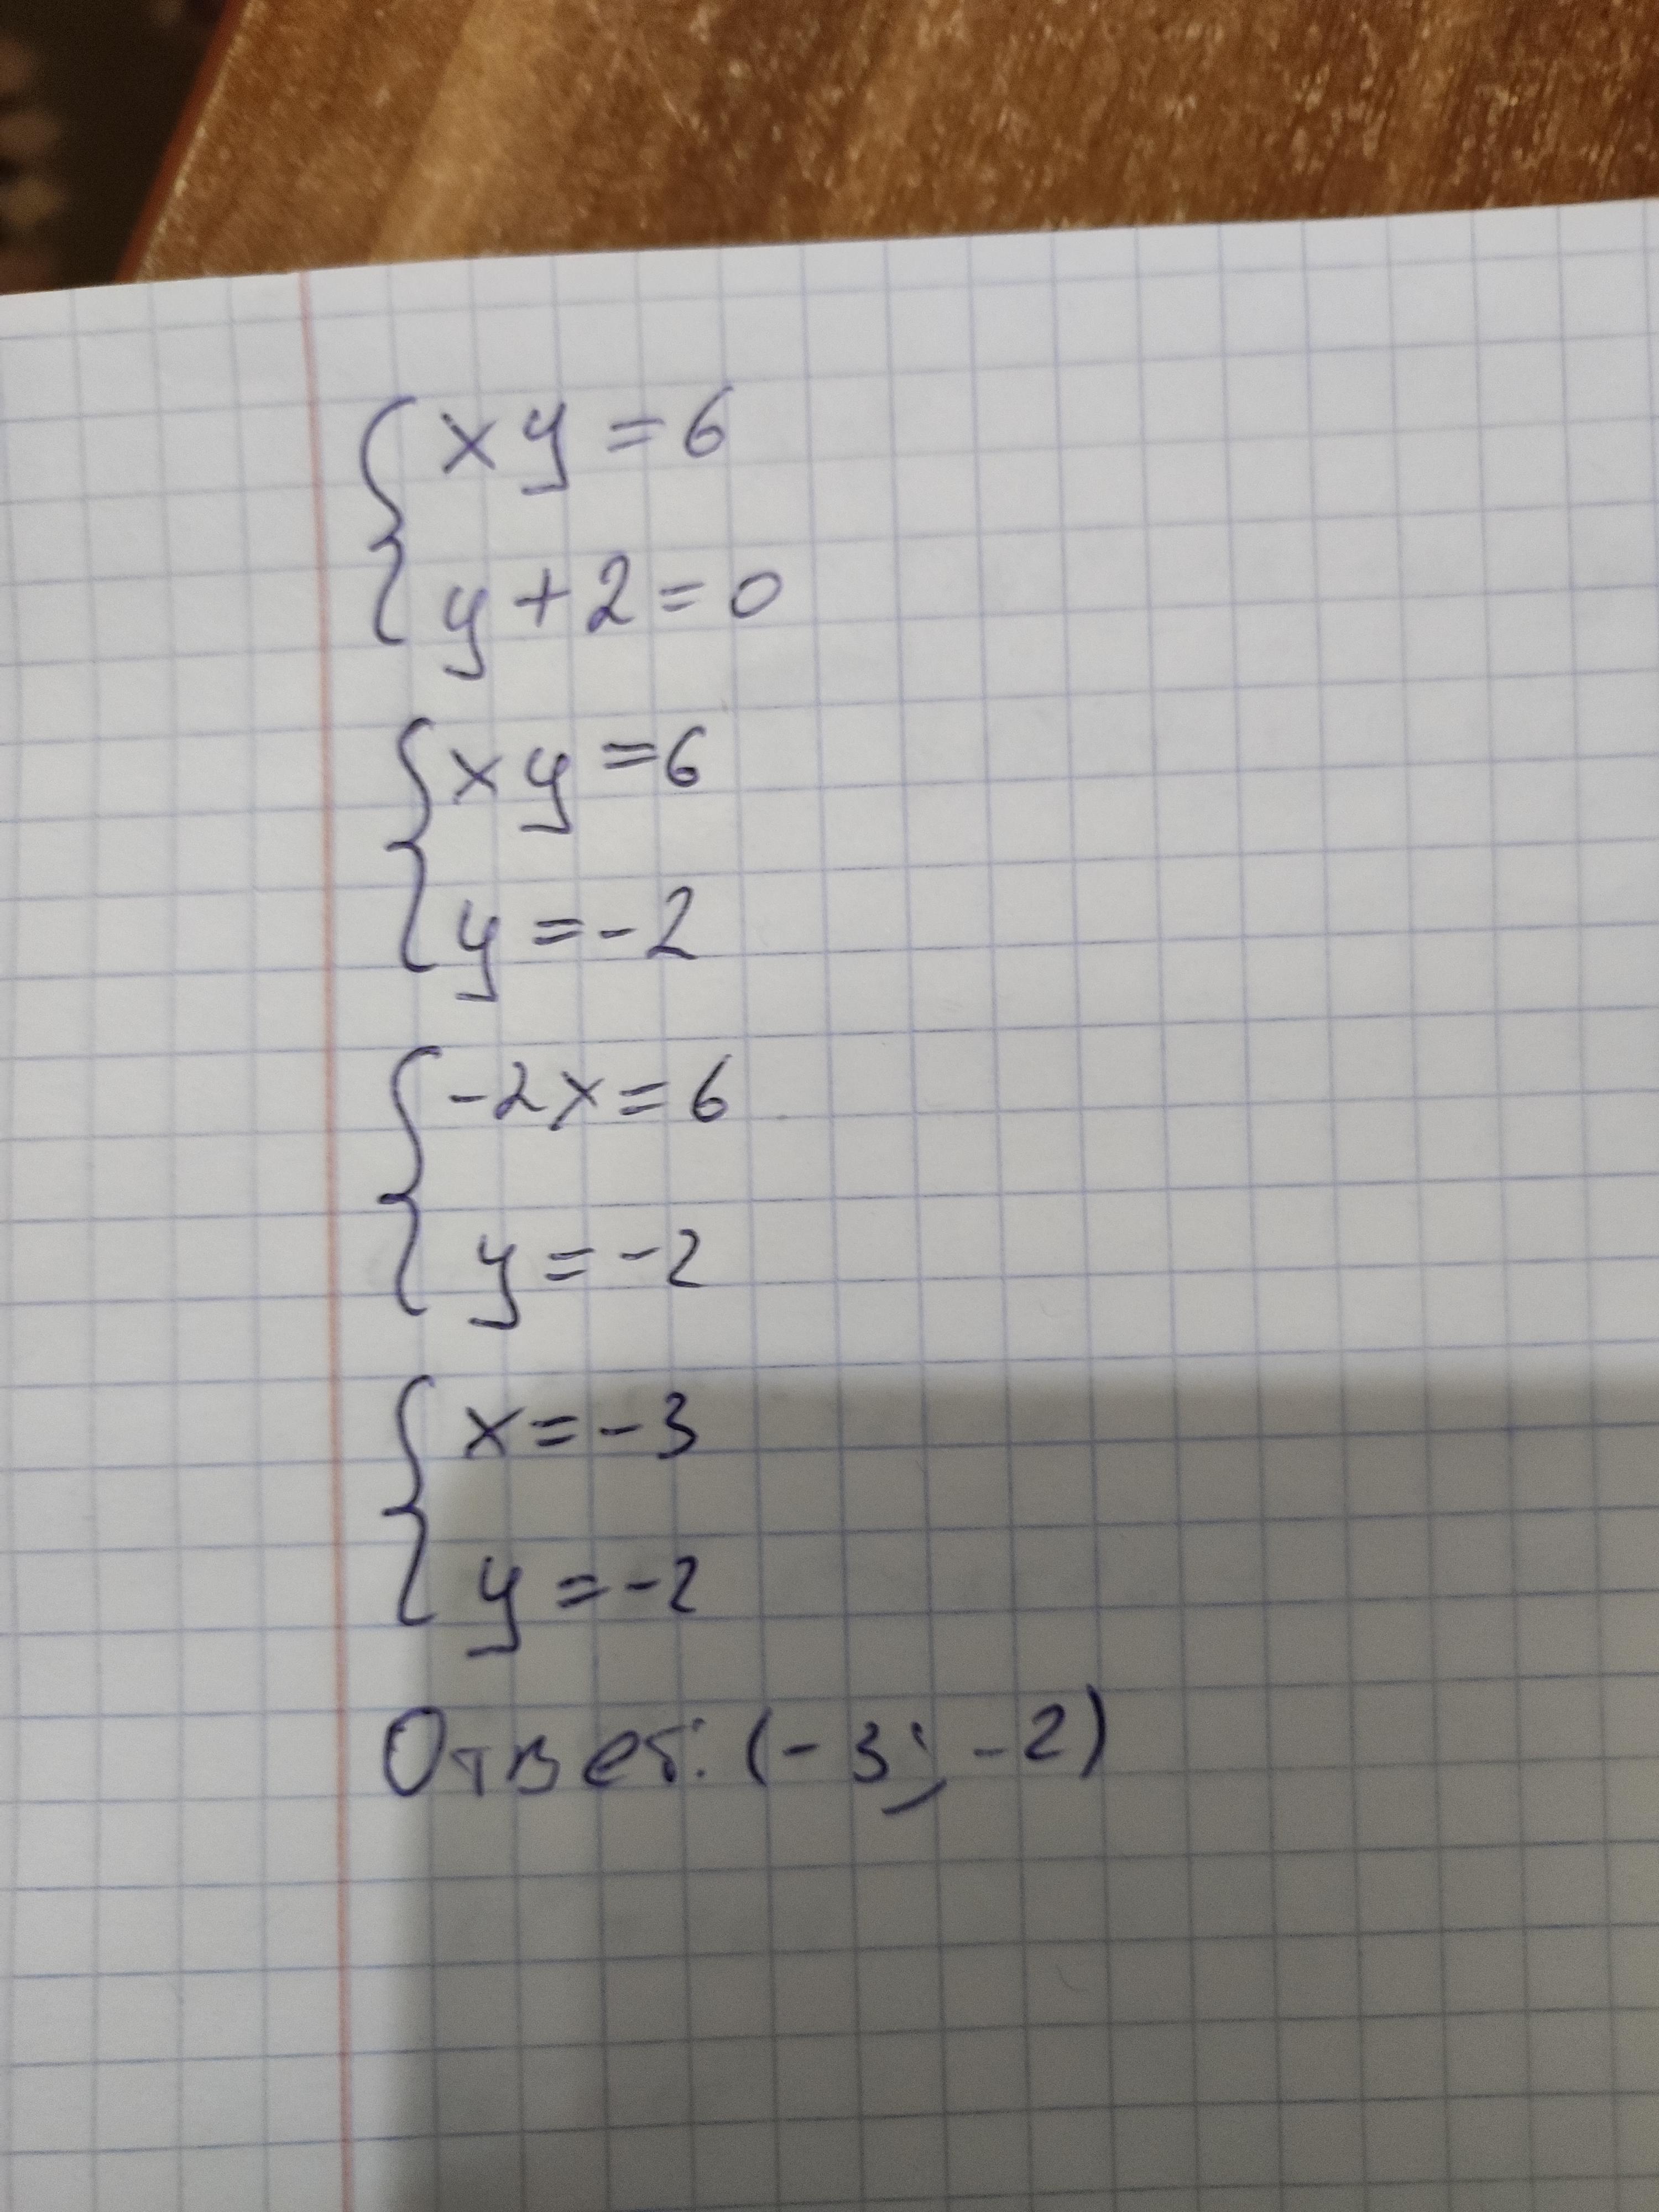 xy = 6
y + 2 = 0
xy = 6
y = -2
-2x = 6
y = -2
x = -3
y = -2
Ответ: (-3; -2)